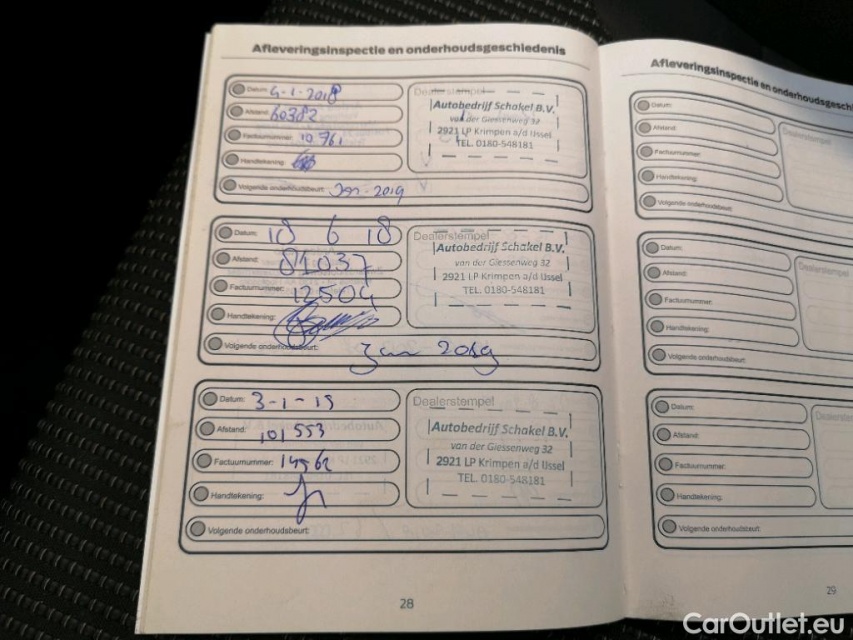 Afleveringsinspectie en onderhoudsgeschiedenis
Datum: 4-1-2018
Afstand: 60382
Factuurnummer: 10961
Handtekening:
Volgende onderhoudsbeurt: Jan-2019
Dealerstempel
Autobedrijf Schakel B.V.
van der Giessenweg 32
2921 LP Krimpen a/d IJssel
TEL. 0180-548181
Datum: 18 6 18
Afstand: 81037
Factuurnummer: 12504
Handtekening:
Volgende onderhoudsbeurt: Jan 2019
Dealerstempel
Autobedrijf Schakel B.V.
van der Giessenweg 32
2921 LP Krimpen a/d IJssel
TEL. 0180-548181
Datum: 3-1-19
Afstand: 101553
Factuurnummer: 14562
Handtekening:
Volgende onderhoudsbeurt:
Dealerstempel
Autobedrijf Schakel B.V.
van der Giessenweg 32
2921 LP Krimpen a/d IJssel
TEL. 0180-548181
28
Afleveringsinspectie en onderhoudsgesch
Datum:
Afstand:
Factuurnummer:
Handtekening:
Volgende onderhoudsbeurt:
Dealerstempel
Datum:
Afstand:
Factuurnummer:
Handtekening:
Volgende onderhoudsbeurt:
Dealerstem
Datum:
Afstand:
Factuurnummer:
Handtekening:
Volgende onderhoudsbeurt:
Dealerste
29
CarOutlet.eu